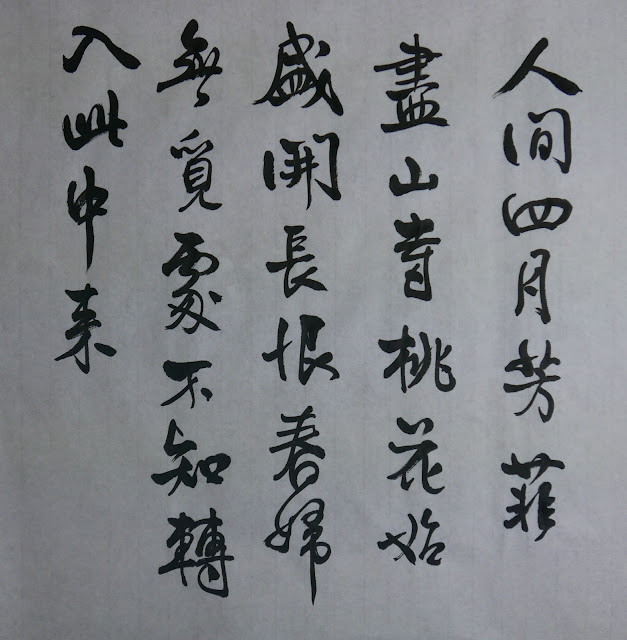 人間四月芳菲
盡山寺桃花始
盛開長恨春歸
無覓處不知轉
入此中来